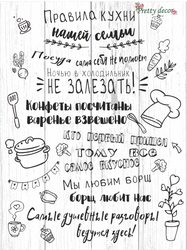 Pretty decor
Правила кухни
нашей семьи
Посуда сама себя не помоет
Ночью в холодильник
НЕ ЗАЛЕЗАТЬ!
Конфеты посчитаны
варенье взвешено
Кто первый пришел
ТОМУ ВСЕ
САМОЕ ВКУСНОЕ
Мы любим борщ
борщ любит нас
Самые душевные разговоры
ведутся здесь!